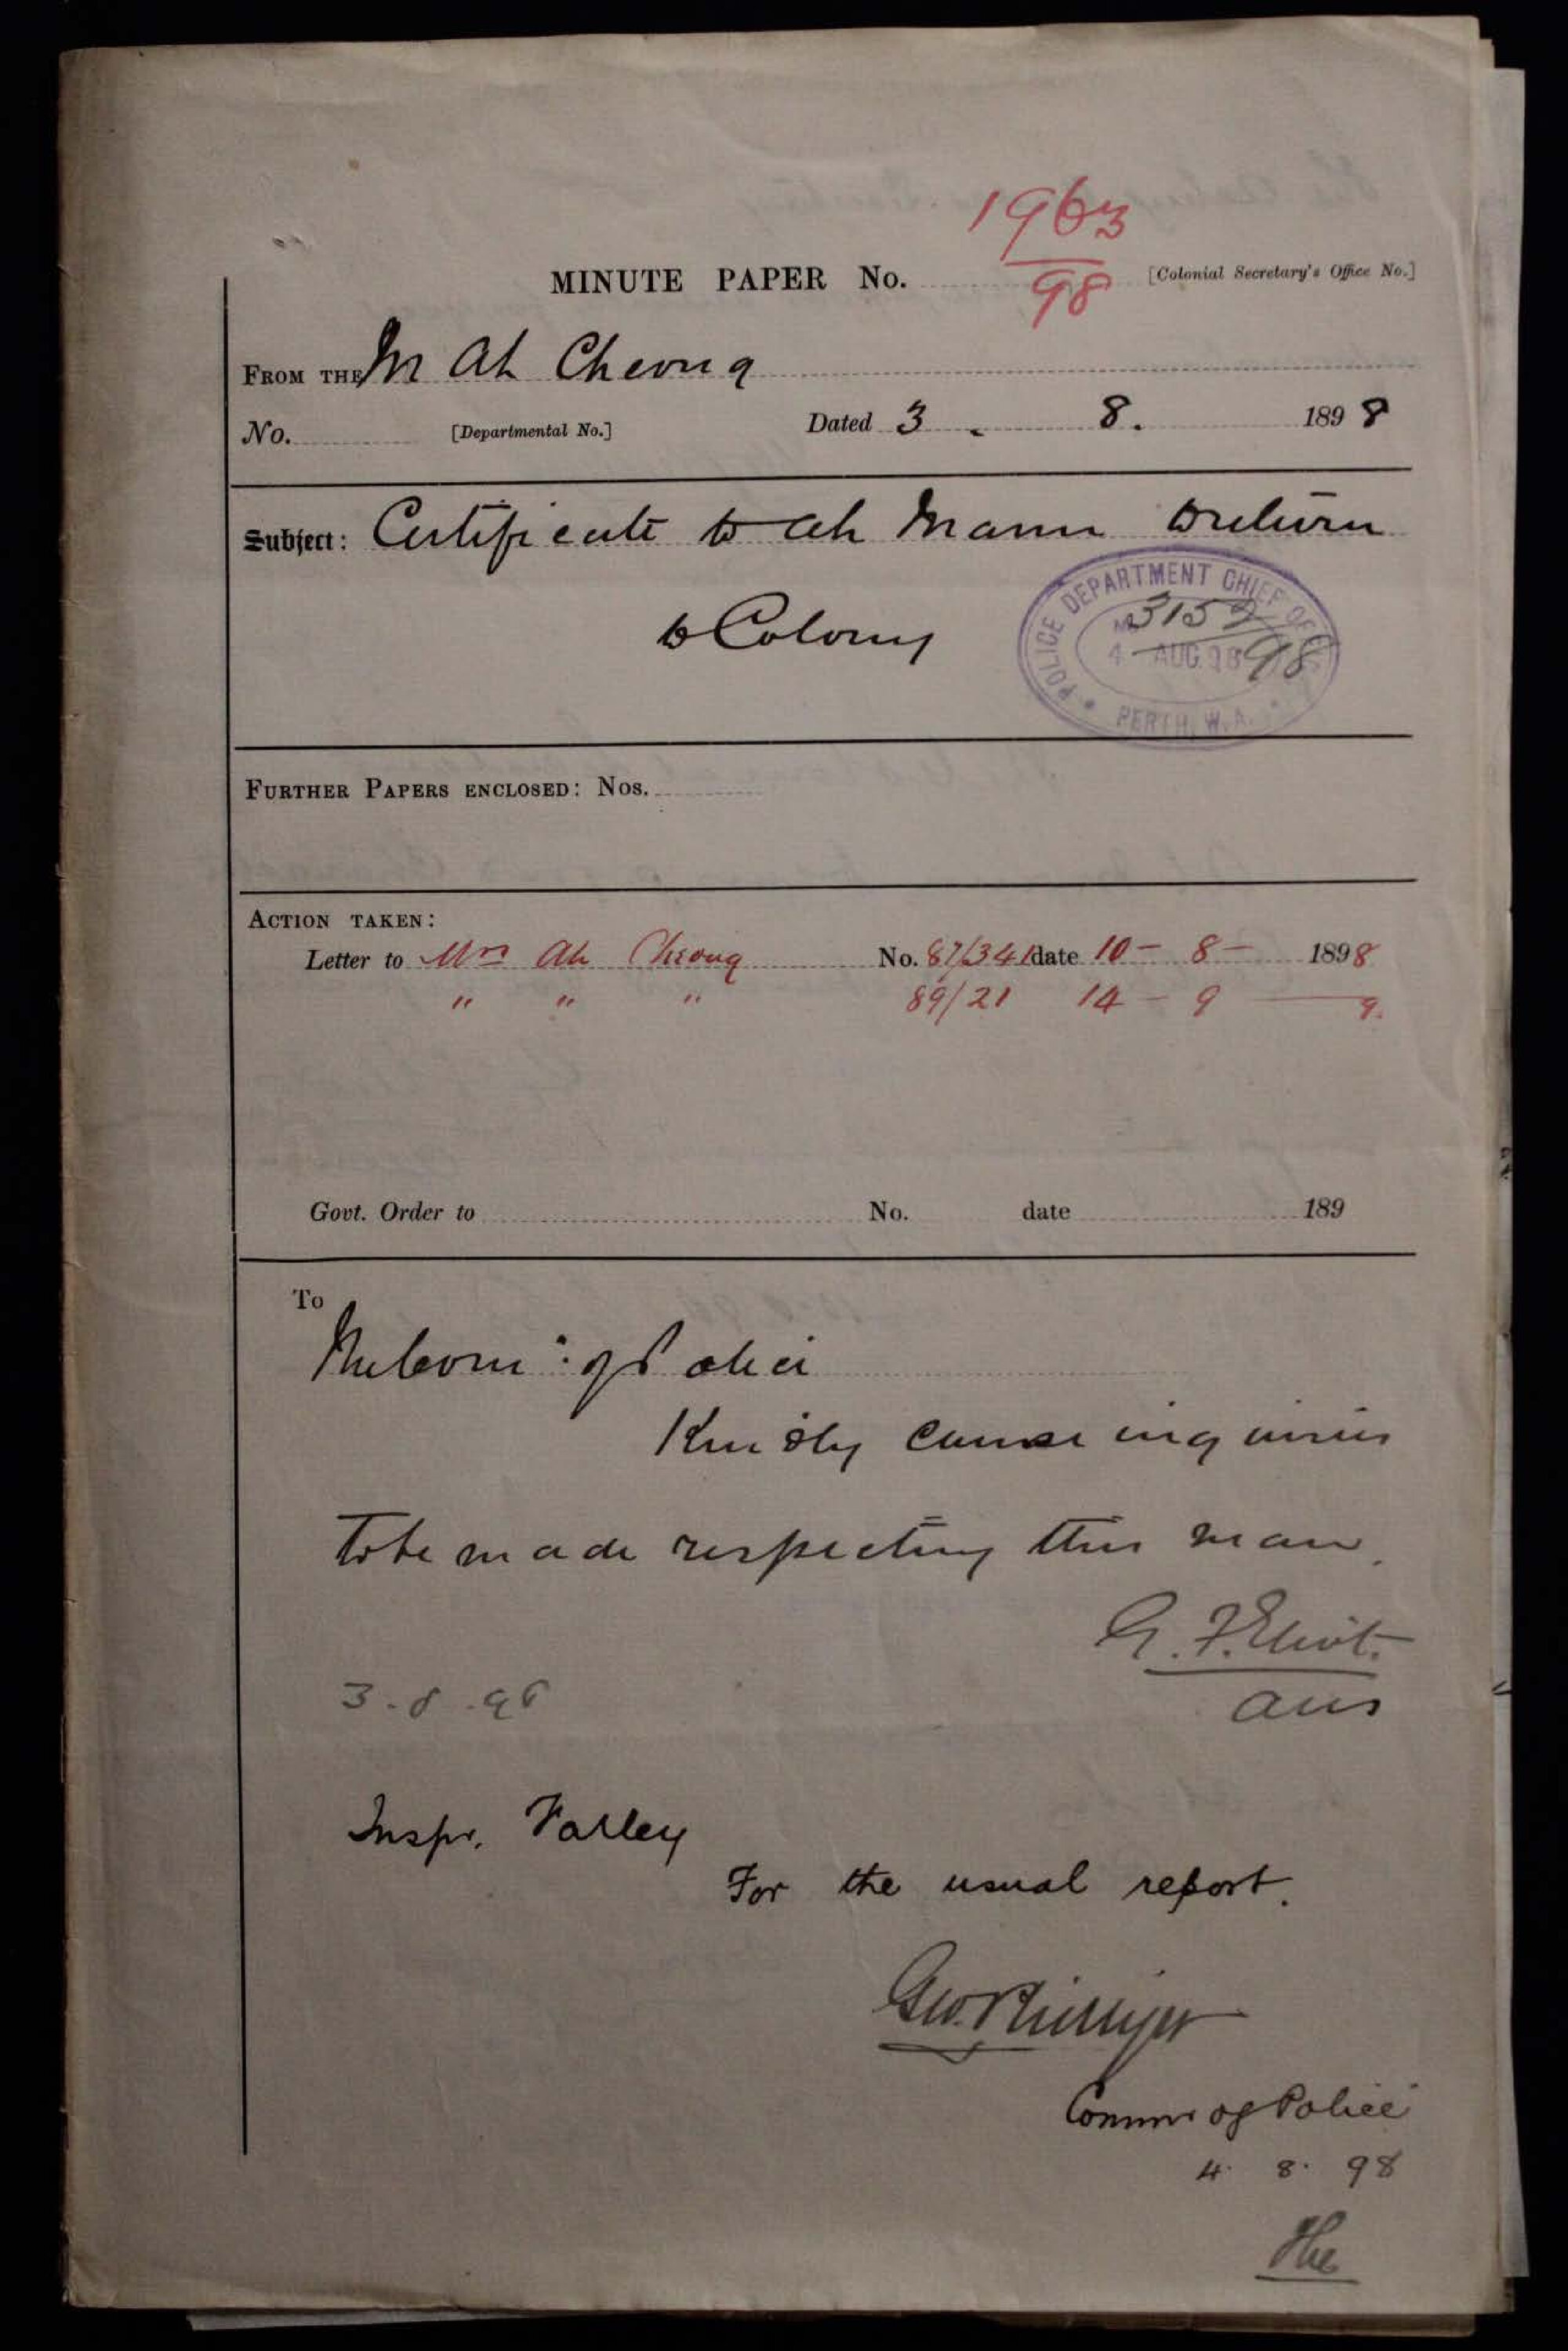 1963
98
MINUTE PAPER No. [Colonial Secretary's Office No.]
FROM THE M Ah Cheong
No. [Departmental No.] Dated 3. 8. 1898
Subject: Certificate to Ah Mann to return
to Colony
POLICE DEPARTMENT CHIEF OF
3152/98
4 AUG. 98
PERTH, W.A.
FURTHER PAPERS ENCLOSED: Nos.
ACTION TAKEN:
Letter to Mrs Ah Cheong No. 87/341 date 10 - 8 - 1898
" " " 89/21 14 - 9 — 9.
Govt. Order to No. date 189
To
The Comr: of Police
Kindly cause inquiries
to be made respecting this man.
G. F. Eliot.
3.8.98
Inspr. Farley
For the usual report.
Geo Phillips
Commr of Police
4. 8. 98
The